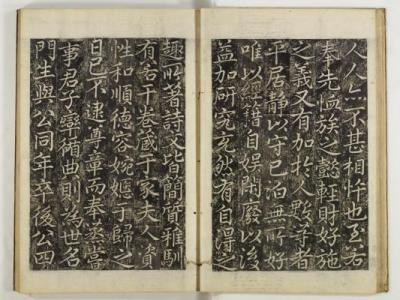 人人亦不甚相忤也至若
奉先恤族之懿輕財好施
之義又有加於人數等者
平居靜以守己泊無所好
唯以經籍自娛閑廢以後
益加研究充然有自得之
趣所著詩文皆簡質雅馴
有若干卷藏于家夫人資
性和順德容婉嫕于歸之
日已不逮尊章而奉烝嘗
事君子率循曲則為世名
門生與公同年卒後公四